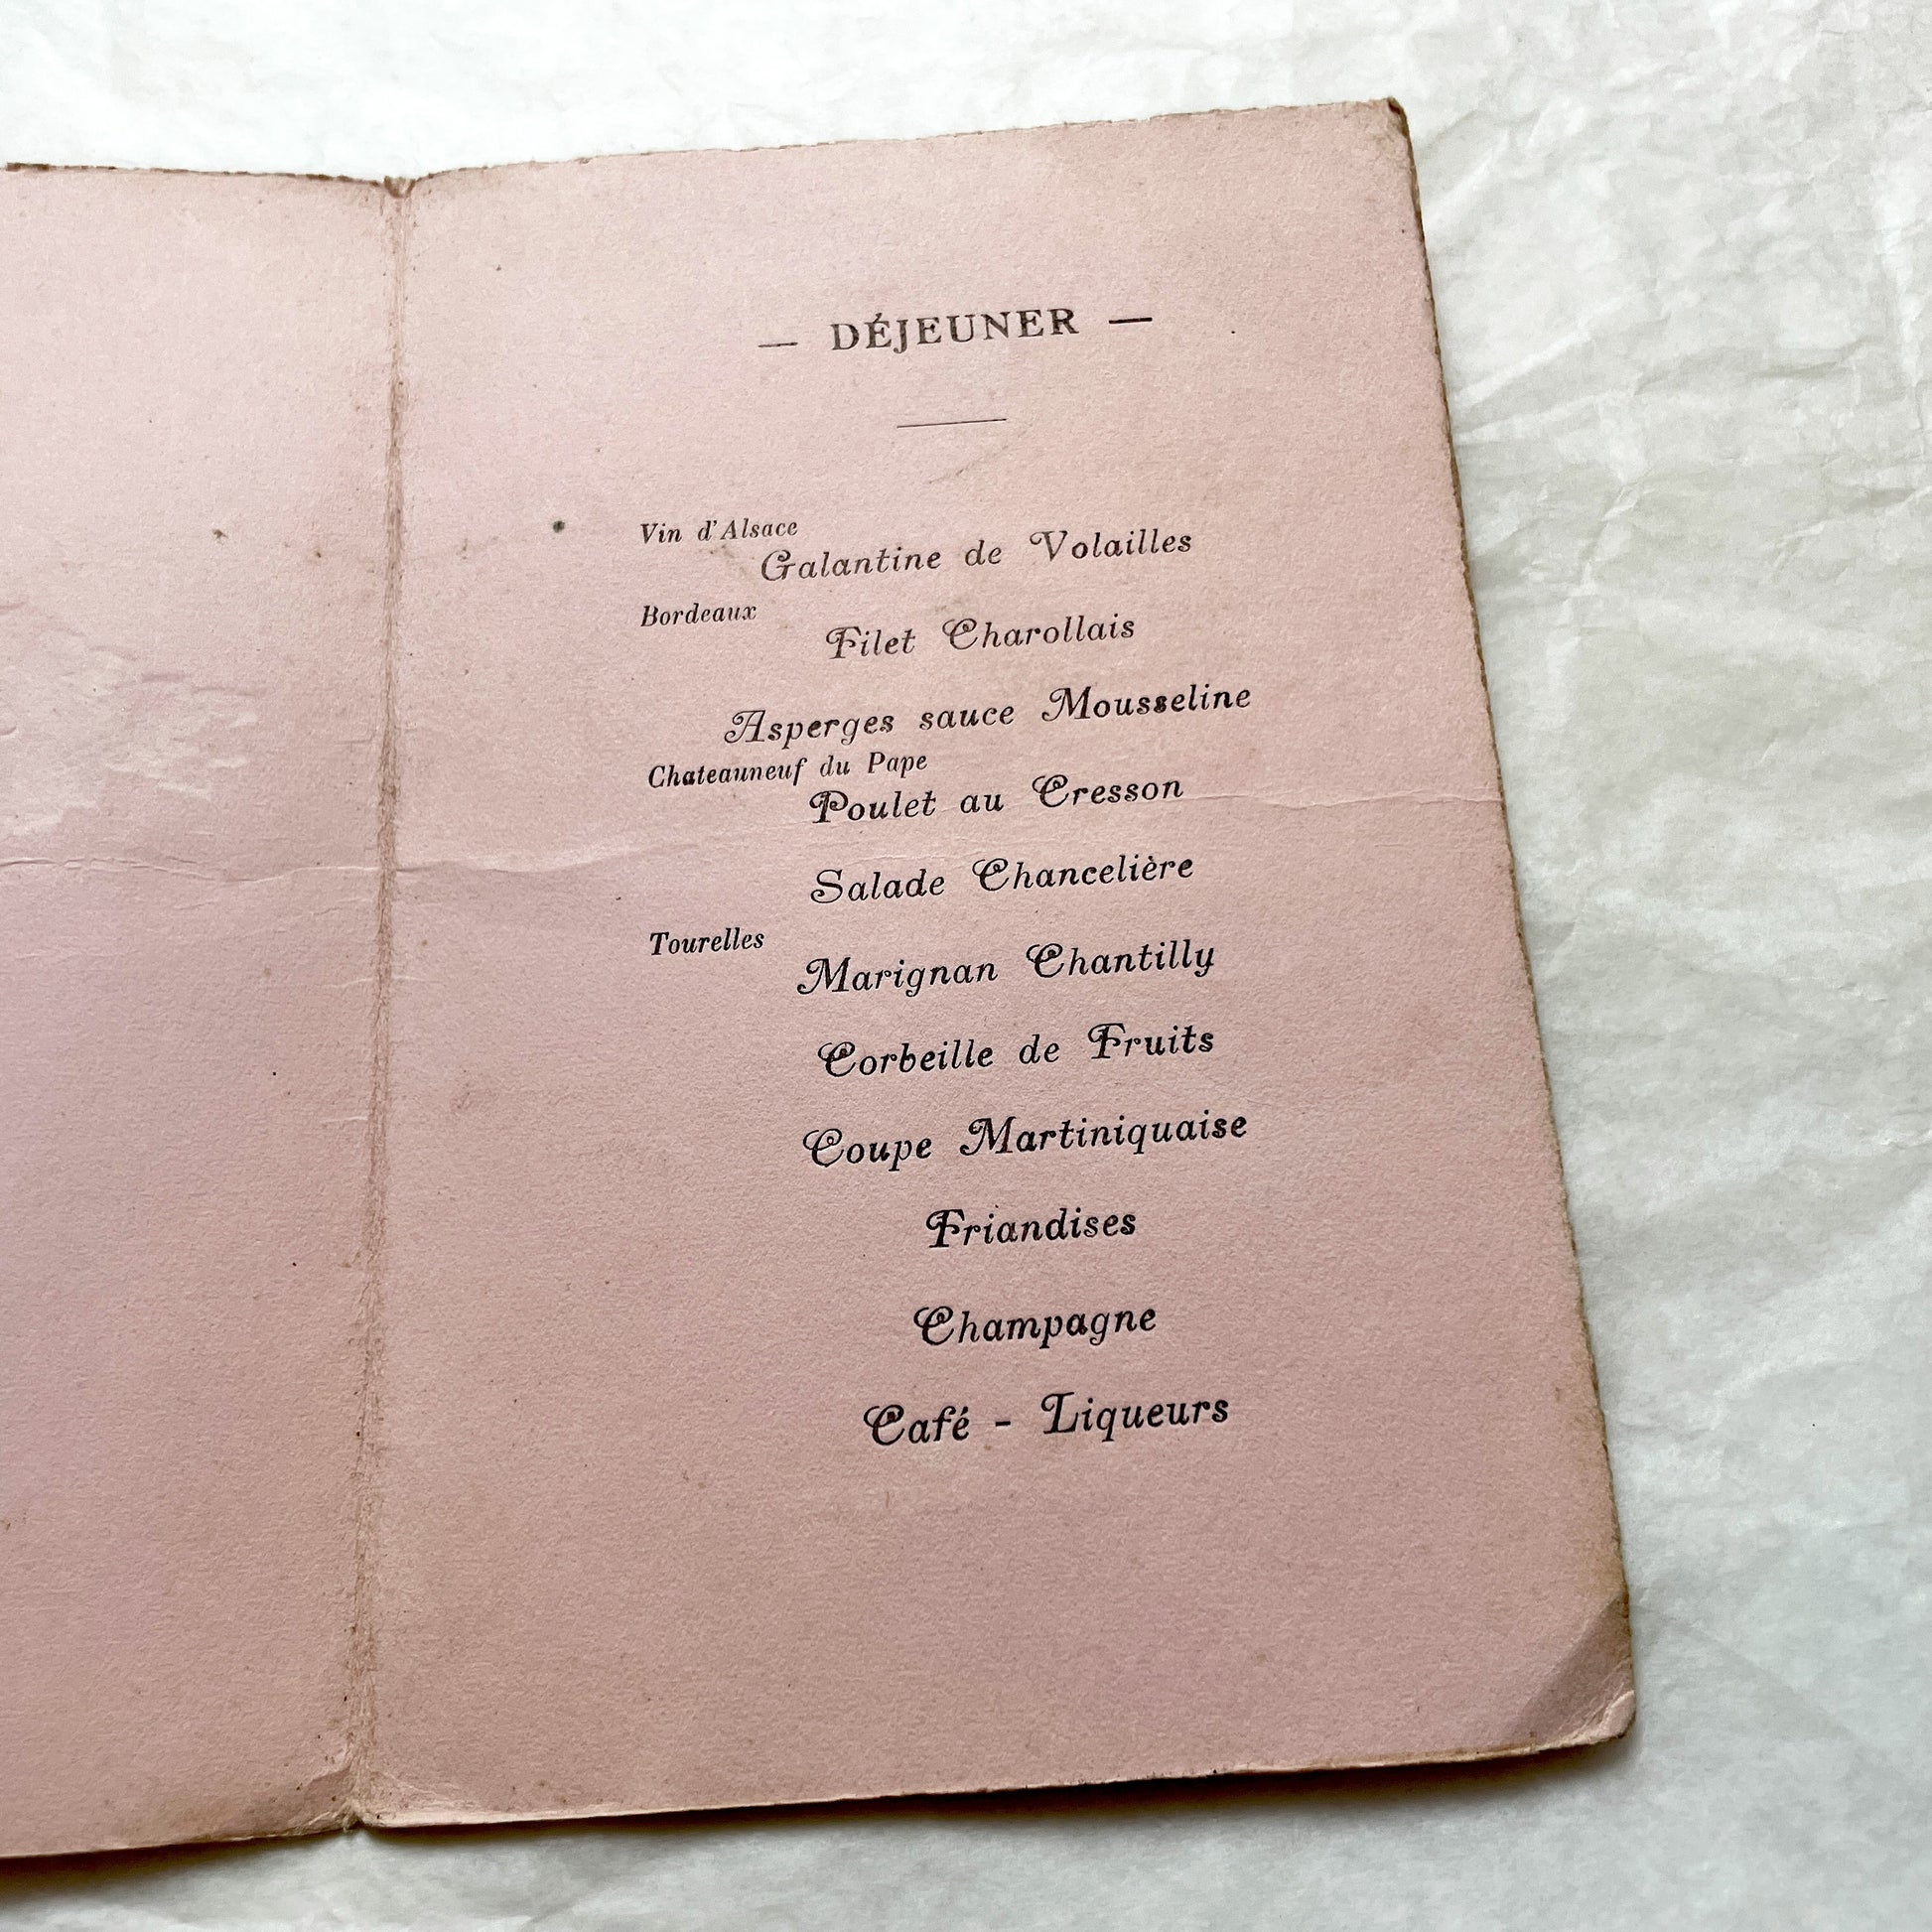 — DÉJEUNER —
Vin d'Alsace
Galantine de Volailles
Bordeaux
Filet Charollais
Asperges sauce Mousseline
Chateauneuf du Pape
Poulet au Cresson
Salade Chancelière
Tourelles
Marignan Chantilly
Corbeille de Fruits
Coupe Martiniquaise
Friandises
Champagne
Café - Liqueurs